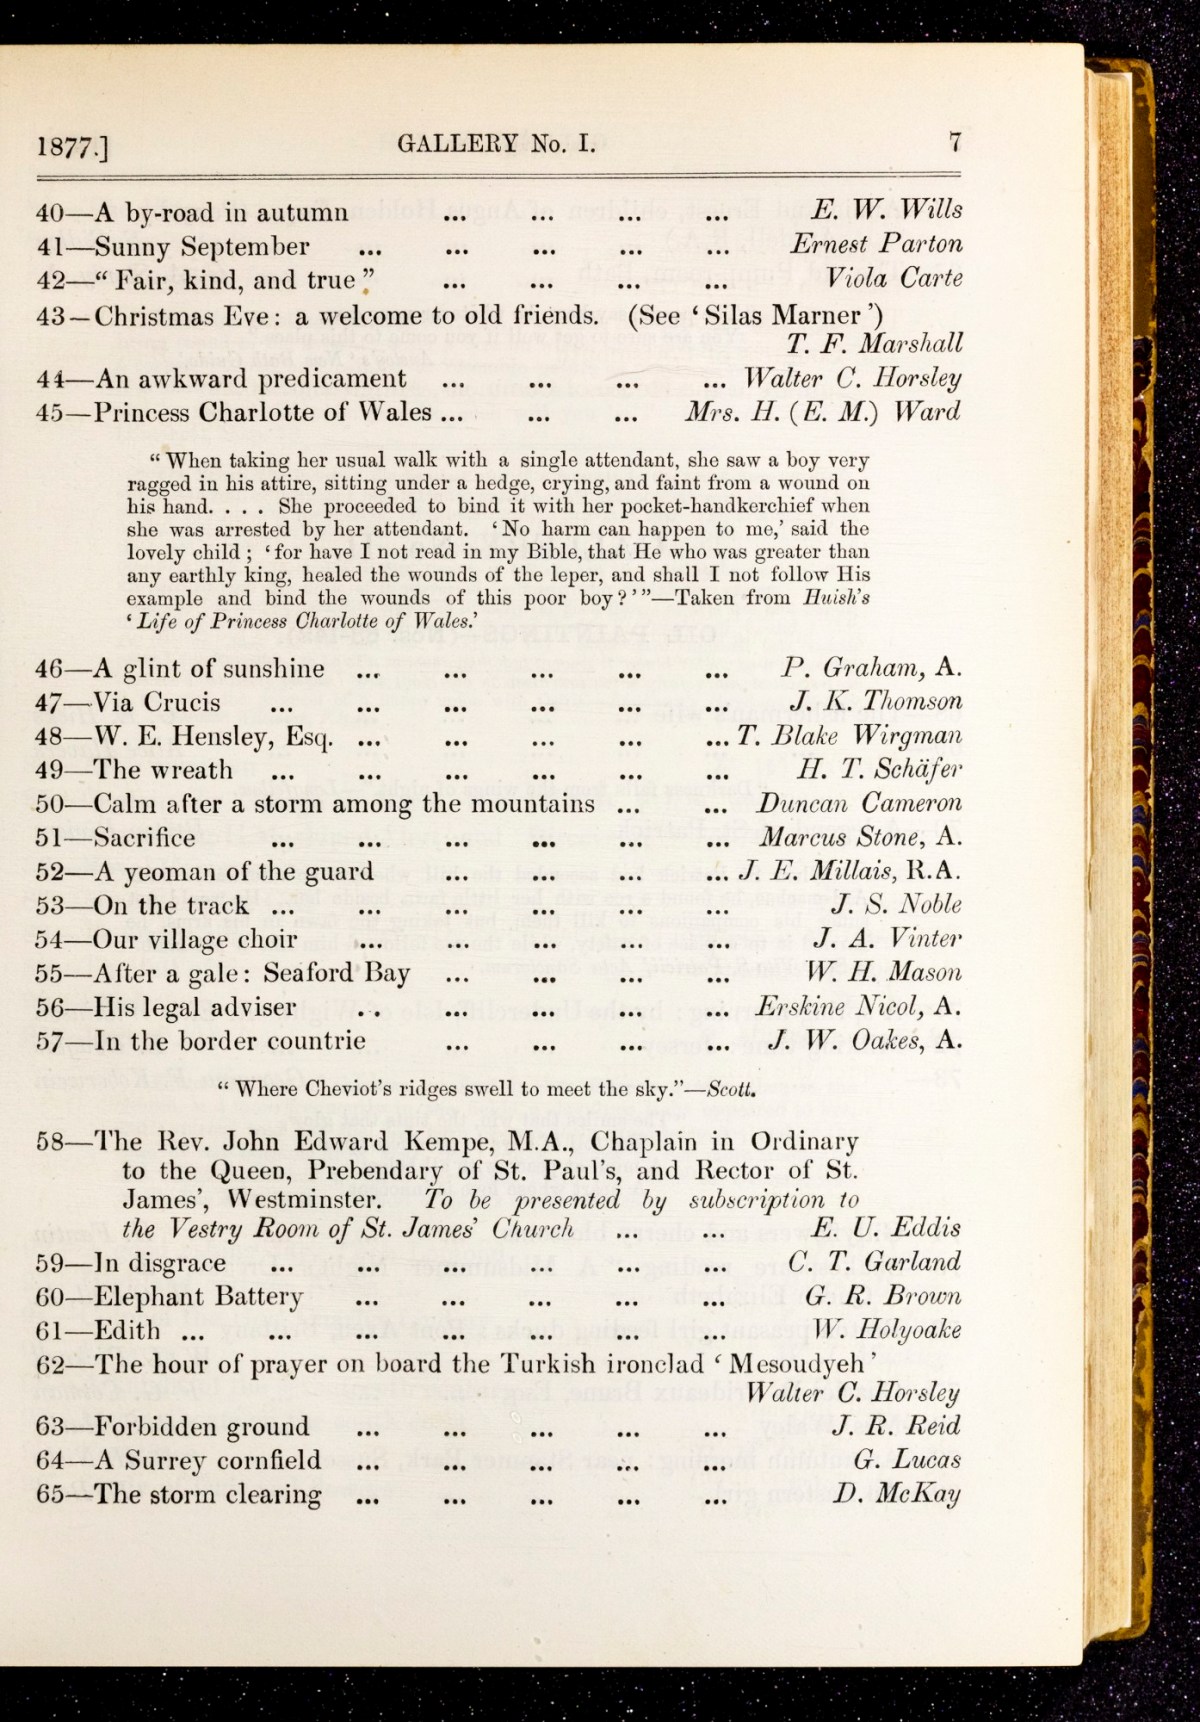 1877.] GALLERY No. I. 7
40—A by-road in autumn ... ... ... ... E. W. Wills
41—Sunny September ... ... ... ... ... Ernest Parton
42—“ Fair, kind, and true ” ... ... ... ... Viola Carte
43—Christmas Eve: a welcome to old friends. (See ‘ Silas Marner ’)
T. F. Marshall
44—An awkward predicament ... ... ... ... Walter C. Horsley
45—Princess Charlotte of Wales ... ... ... Mrs. H. (E. M.) Ward
“ When taking her usual walk with a single attendant, she saw a boy very
ragged in his attire, sitting under a hedge, crying, and faint from a wound on
his hand. . . . She proceeded to bind it with her pocket-handkerchief when
she was arrested by her attendant. ‘ No harm can happen to me,’ said the
lovely child ; ‘ for have I not read in my Bible, that He who was greater than
any earthly king, healed the wounds of the leper, and shall I not follow His
example and bind the wounds of this poor boy ? ’ ”—Taken from Huish’s
‘ Life of Princess Charlotte of Wales.’
46—A glint of sunshine ... ... ... ... ... P. Graham, A.
47—Via Crucis ... ... ... ... ... ... J. K. Thomson
48—W. E. Hensley, Esq. ... ... ... ... ... T. Blake Wirgman
49—The wreath ... ... ... ... ... ... H. T. Schäfer
50—Calm after a storm among the mountains ... ... Duncan Cameron
51—Sacrifice ... ... ... ... ... ... Marcus Stone, A.
52—A yeoman of the guard ... ... ... ... J. E. Millais, R.A.
53—On the track ... ... ... ... ... ... J. S. Noble
54—Our village choir ... ... ... ... ... J. A. Vinter
55—After a gale: Seaford Bay ... ... ... ... W. H. Mason
56—His legal adviser . . ... ... ... ... Erskine Nicol, A.
57—In the border countrie ... ... ... ... J. W. Oakes, A.
“ Where Cheviot’s ridges swell to meet the sky.”—Scott.
58—The Rev. John Edward Kempe, M.A., Chaplain in Ordinary
to the Queen, Prebendary of St. Paul’s, and Rector of St.
James’, Westminster. To be presented by subscription to
the Vestry Room of St. James’ Church ... ... E. U. Eddis
59—In disgrace ... ... ... ... ... ... C. T. Garland
60—Elephant Battery ... ... ... ... ... G. R. Brown
61—Edith ... ... ... ... ... ... ... W. Holyoake
62—The hour of prayer on board the Turkish ironclad ‘ Mesoudyeh ’
Walter C. Horsley
63—Forbidden ground ... ... ... ... ... J. R. Reid
64—A Surrey cornfield ... ... ... ... ... G. Lucas
65—The storm clearing ... ... ... ... ... D. McKay